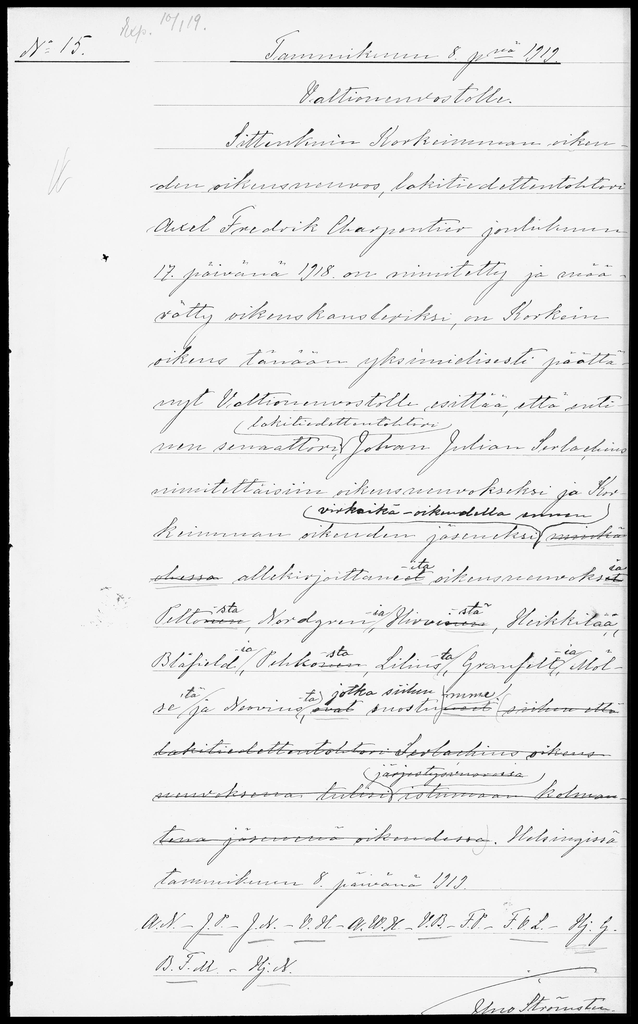 Exp. 10/1 19.
No 15.
Tammikuun 8. p:nä 1919.
Valtioneuvostolle.
Sittenkuin Korkeimman oikeu-
den oikeusneuvos, lakitiedettentohtori
Axel Fredrik Charpentier joulukuun
17. päivänä 1918 on nimitetty ja mää-
rätty oikeuskansleriksi, on Korkein
oikeus tänään yksimielisesti päättä-
nyt Valtioneuvostolle esittää, että enti-
lakitiedettentohtori
nen senaattori, Johan Julian Serlachius
nimitettäisiin oikeusneuvokseksi ja Kor-
virkaikä-oikeudella ennen
keimman oikeuden jäseneksi minkä
ohessa allekirjoittaneet -ita oikeusneuvokset -ia
Peltonen -sta, Nordgren -ia, Hirvinen -stä, Heikkilää,
Blåfield -ia, Pehkonen -sta, Lilius -ta, Granfelt -ia, Möl-
se -itä ja Neovius -ta, ovat jotka siihen suostuvat -mme siihen että
lakitiedettentohtori Serlachius oikeus-
järjestysvuorossa
neuvoksena tulisi istumaan kolman-
tena jäsenenä oikeudessa. Helsingissä
tammikuun 8. päivänä 1919.
A.N. - J.P. - J.N. - O.H. - A.W.H. - V.B. - F.P. - F.O.L. - Hj. G.
B.F.M. - Hj.N.
Uno Strömsten.